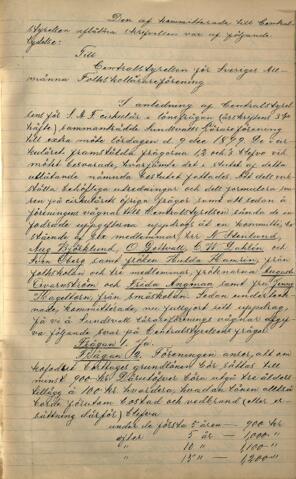 Den af kommitterade till Central-
styrelsen aflåtna skrifvelsen var af följande
lydelse:
Till
Centralstyrelsen för Sveriges All-
männa Folkskollärareförening
I anledning af Centralstyrel-
sens för S. A. F. cirkulär i lönefrågan (årsskriftens 3:e
häfte) sammanträdde Sundsvalls lärareförening
till extra möte lördagen d. 9 dec 1899. De i cir-
kuläret framstälda frågorna 12 och 13 blefvo vid
mötet besvarade, hvarjemte det i slutet af detta
uttalande nämnda beslutet fattades. Att dels verk-
ställa behöfliga utredningar och dels formulera svaren
på cirkulärets öfriga frågor samt att sedan å
föreningens vägnar till Centralstyrelsen sända de in-
fordrade uppgifterna uppdrogs åt en kommitté, be-
stående af sex medlemmar, herr
Aug Björklund, O C W Dahlén och
Sven Öberg samt fröken Hulda Hamrin, från
folkskolan och tre medlemmar, fröknarna Augusta
och Frida Angman samt fru Jenny
Hagelthorn, från småskolan. Sedan underteck-
nade, kommitterade, nu fullgjort sitt uppdrag,
få vi å Sundsvalls lärareförenings vägnar afgif-
va följande svar på Centralstyrelsens frågor.
Frågan 1. Ja.
Frågan 2. Föreningen anser, att en
kofödet grundlönen bör sättas till
minst 900 kr. Därutöfver böra utgå tre ålders-
tillägg à 100 kr. hvardera, hvadan lönen alltså
borde förutom bostad och vedbrand (eller er-
sättning därför) blefva
under de första 5 åren — 900 kr
efter 5 år — 1,000 "
" 10 " 1,100 "
" 15 " 1,200 "